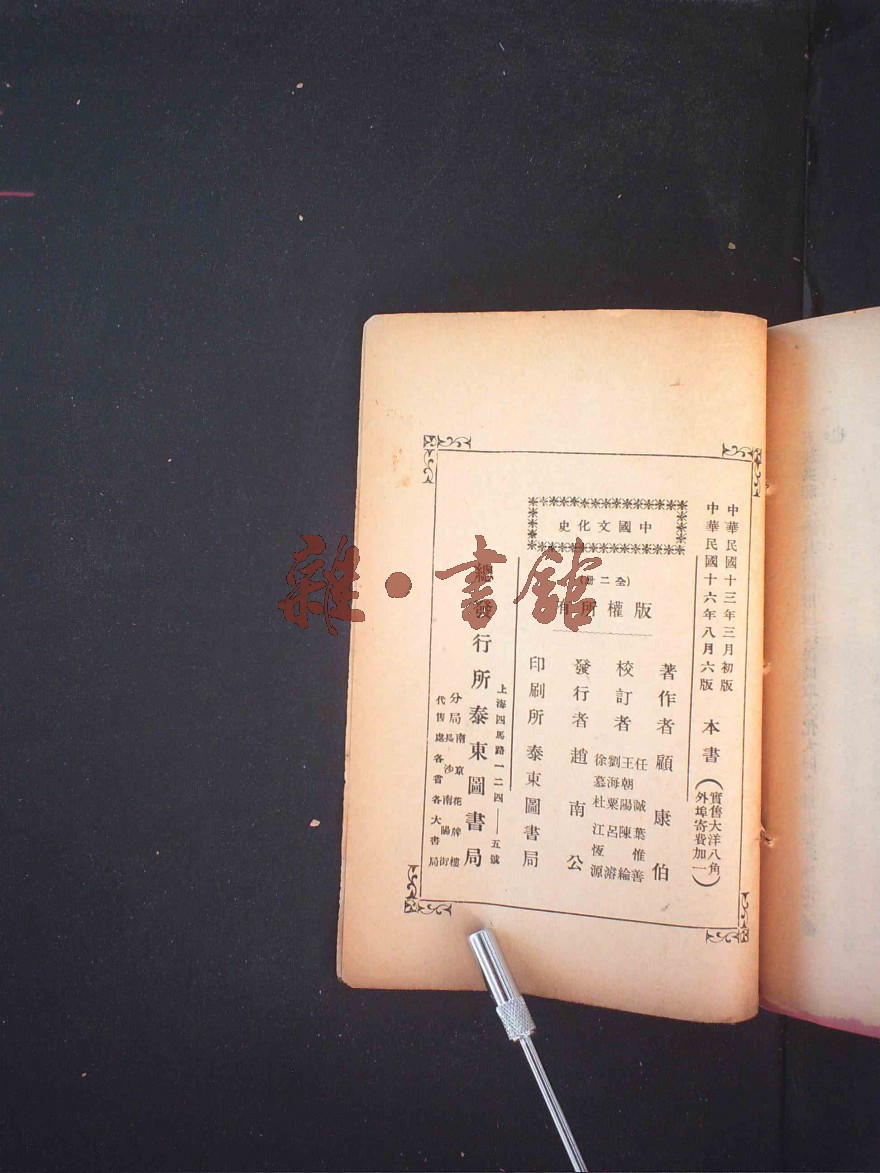 中華民國十三年三月初版
中華民國十六年八月六版
本書(實售大洋八角
外埠寄費加一)
中國文化史
(全二冊)
版權所有
著作者 顧康伯
校訂者
任 誠 葉惟善
王朝陽 陳 綸
劉海粟 呂 濬
徐慕杜 江恆源
發行者 趙南公
印刷所 泰東圖書局
上海四馬路一二四——五號
總發行所 泰東圖書局
分局 南京花牌樓
長沙南陽街
代售處 各省各大書局
雜·書館